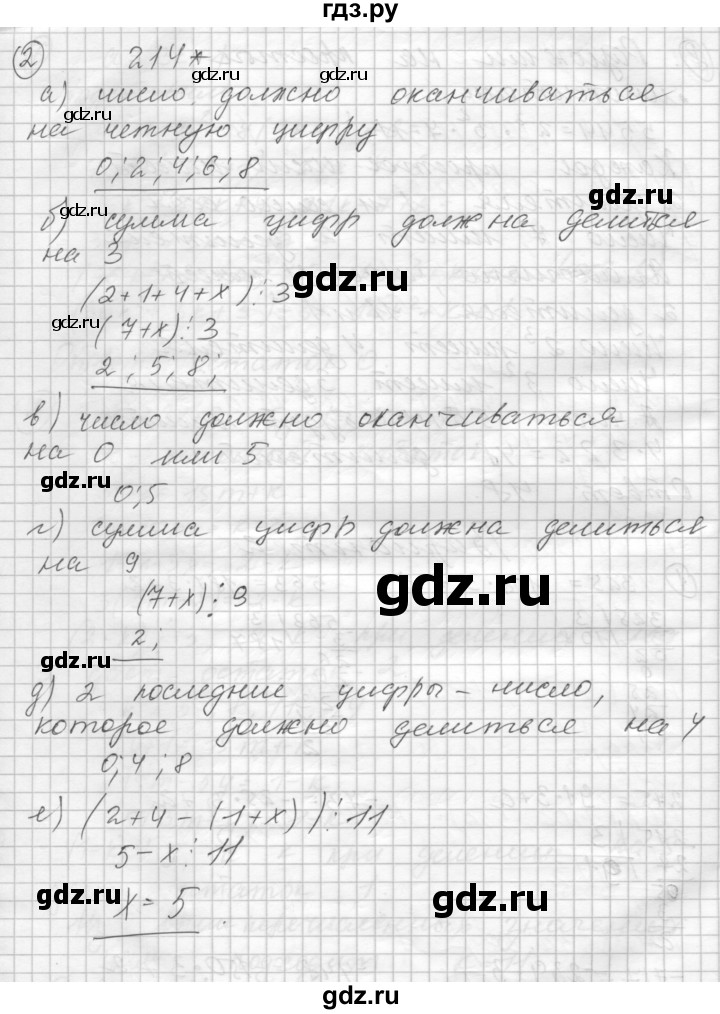 гдз.ру
2 214*
gdz.ru
а) число должно оканчиваться
gdz.ru
на четную цифру
0; 2; 4; 6; 8
gdz.ru
б) сумма цифр должна делиться
gdz.ru
на 3
gdz.ru
(2+1+4+x)⋮3
(7+x)⋮3
gdz.ru
2; 5; 8;
в) число должно оканчиваться
на 0 или 5
gdz.ru
0; 5
г) сумма цифр должна делиться
на 9
gdz.ru
(7+x)⋮9
2;
gdz.ru
д) 2 последние цифры - число,
которое должно делиться на 4
0; 4; 8
е) (2+4-(1+x))⋮11
5-x⋮11
gdz.ru
x=5
gdz.ru
gdz.ru